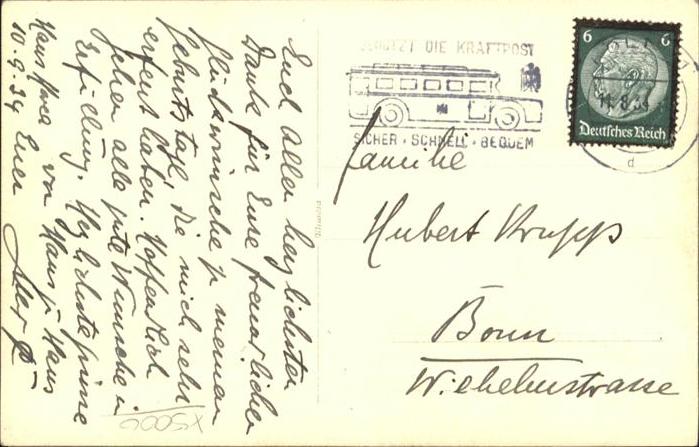 Euch Allen herzlichsten
Dank für Eure freundlichen
Glückwünsche zu meinem
Geburtstage, die mich sehr
erfreut haben. Hoffentlich
gehen alle gute Wünsche in
Erfüllung. Herzlichste Grüsse
von Haus zu Haus
Euer
10.9.34
BENUTZT DIE KRAFTPOST
SICHER · SCHNELL · BEQUEM
6 6
Deutsches Reich
d
Familie
Hubert Krupp
Bonn
Wilhelmstrasse